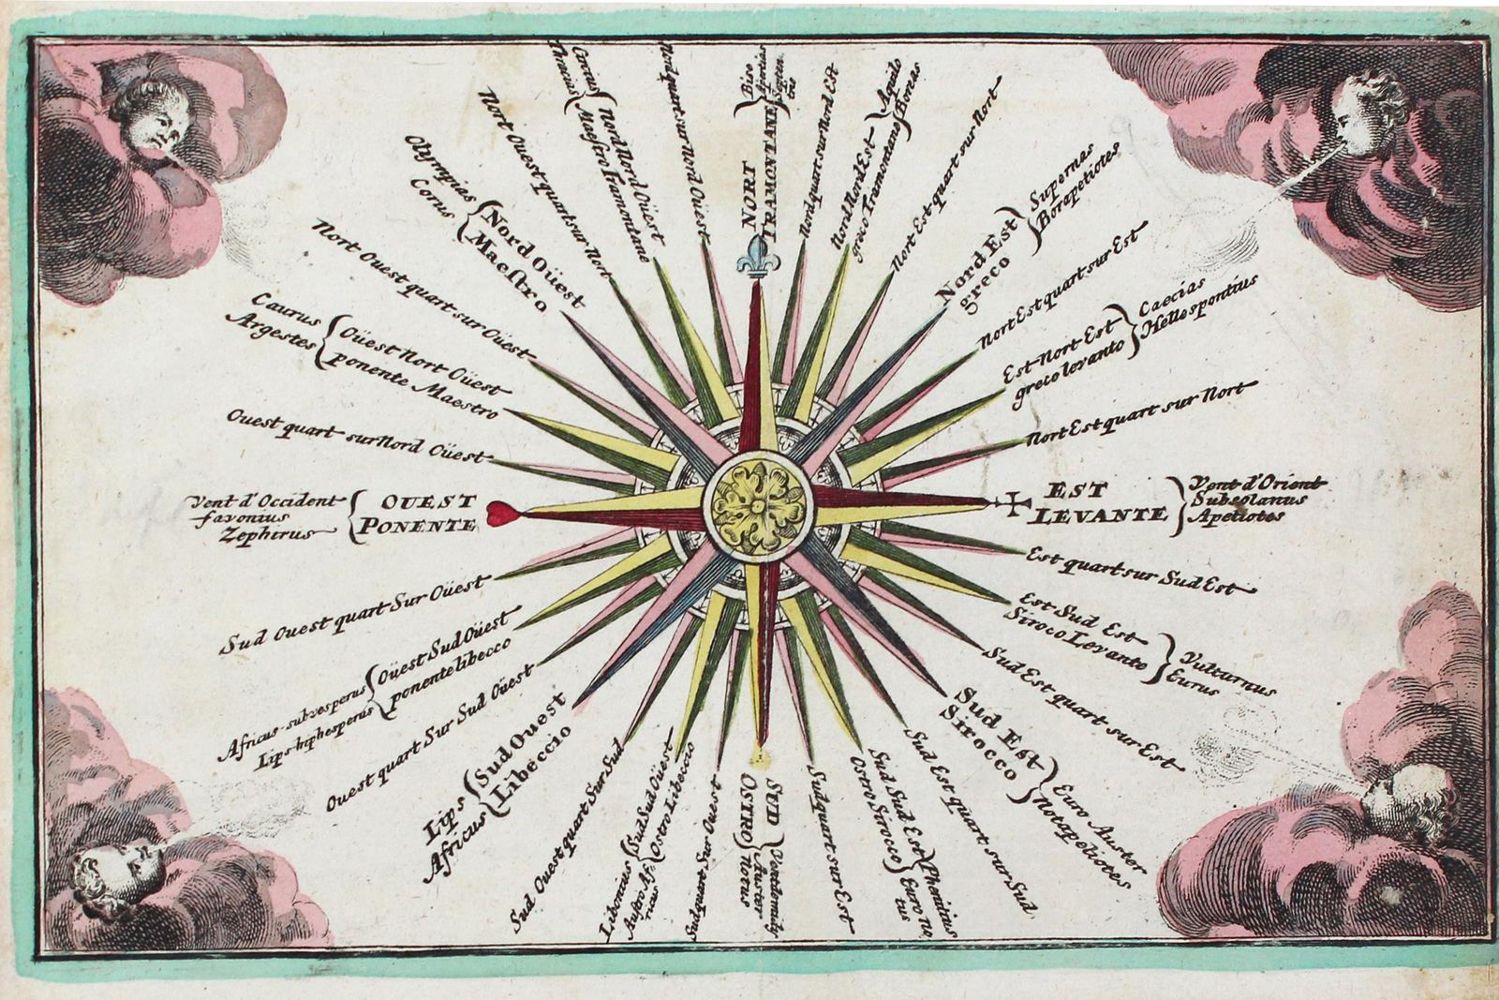 NORT
TRAMONTANE
Bise
Nordquart sur Nord Est
Nord Nord Est
greco Tramontano
Aquilo
Boreas
Nort Est quart sur Nort
Nord Est
greco
Supernas
Borapeliotes
Nort Est quart sur Est
Est-Nort-Est
greco levanto
Caecias
Hellespontius
Nort Est quart sur Nort
EST
LEVANTE
Vent d'Orient
Subsolanus
Apeliotes
Est quart sur Sud Est
Est Sud Est
Siroco Levante
Vulturnus
Eurus
Sud Est quart sur Est
Sud Est
Sirocco
Euro Auster
Notapeliotes
Sud Est quart sur Sud
Sud Sud Est
Ostro Sirocco
Phenitius
Euro no
tus
Sudquart sur Est
SUD
OSTRO
Vent de midy
Auster
Notus
Sudquart Sur Ouest
Sud Sud Oüest
Ostro Libeccio
Libonotus
Austro Af
ricus
Sud Ouest quart Sur Sud
Sud Ouest
Libeccio
Lips
Africus
Ouest quart Sur Sud Oüest
Oüest Sud Oüest
ponente libecco
Africus-subvesperus
Lips-hiphesperus
Sud Ouest quart Sur Oüest
OUEST
PONENTE
Vent d'Occident
favonius
Zephirus
Ouest quart sur Nord Oüest
Oüest Nort Oüest
ponente Maestro
Caurus
Argestes
Nort Ouest quart sur Oüest
Nord Oüest
Maestro
Olympias
Corus
Nort Ouest quart sur Nort
Nord Nord Oüest
Maestro Tramontane
Circius
Thracias
Nordquart sur Nord Oüest